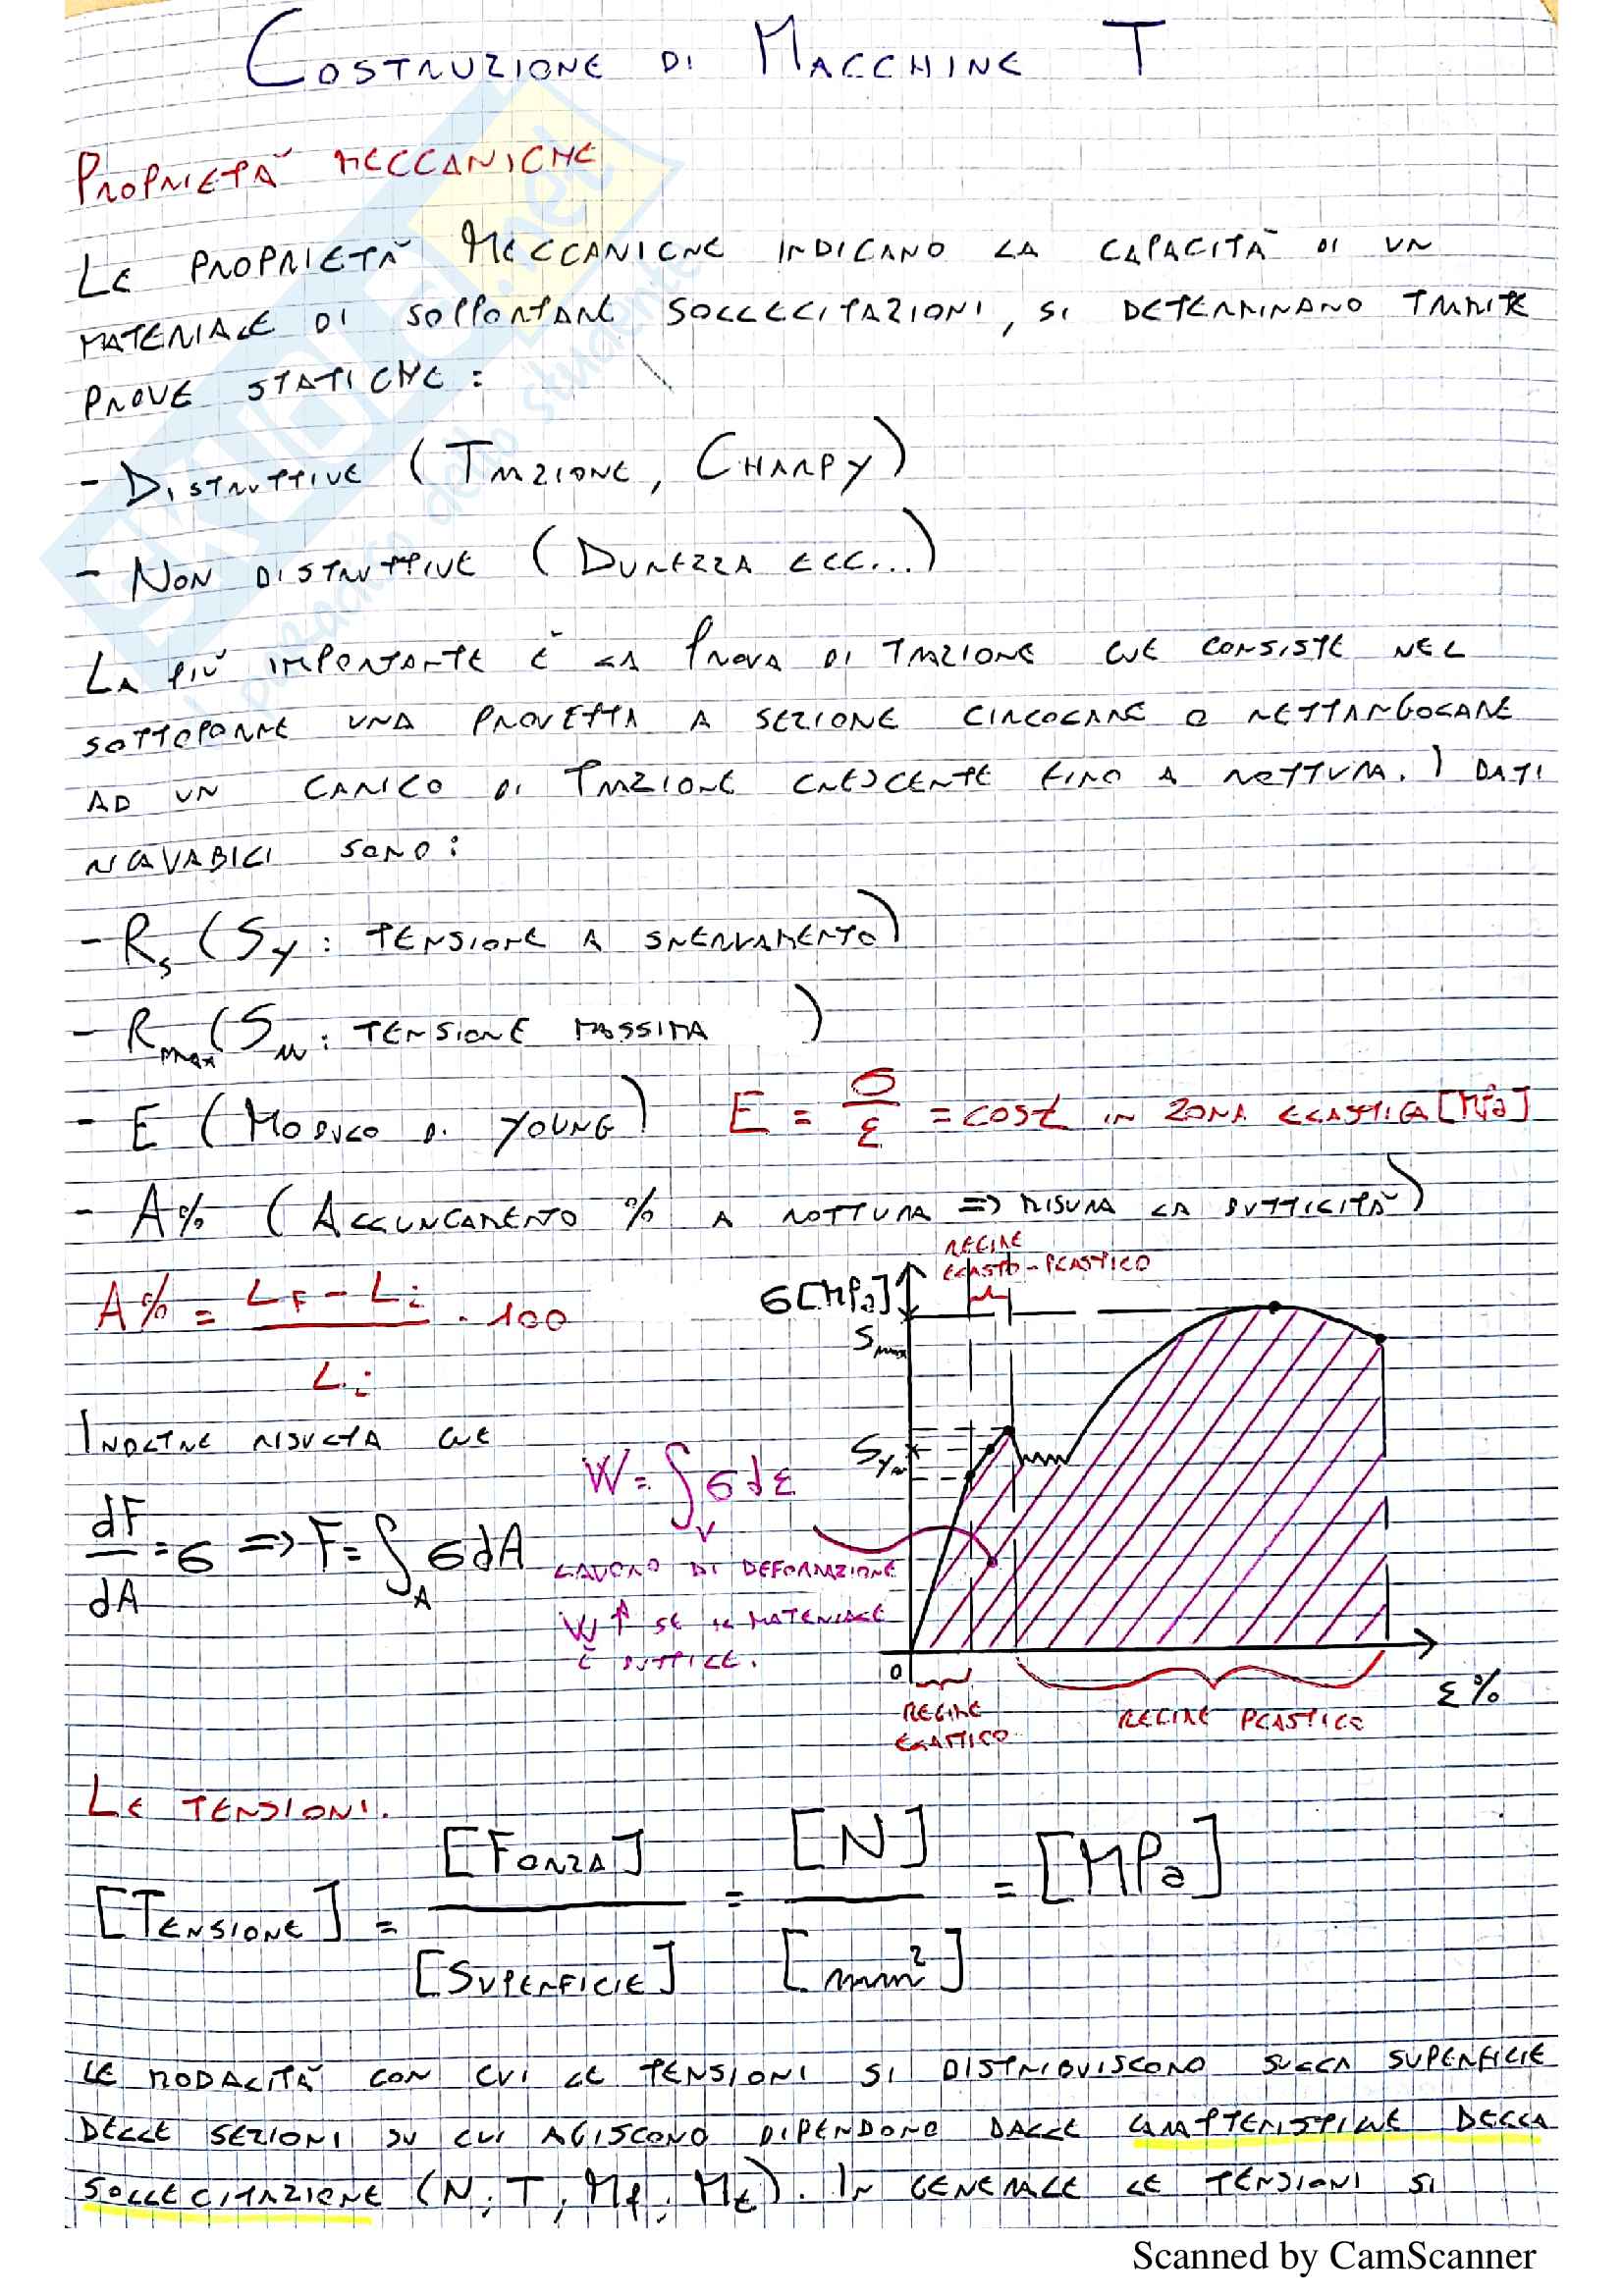 COSTRUZIONE DI MACCHINE T
PROPRIETÀ MECCANICHE
LE PROPRIETÀ MECCANICHE INDICANO LA CAPACITÀ DI UN
MATERIALE DI SOPPORTARE SOLLECITAZIONI, SI DETERMINANO TRAMITE
PROVE STATICHE:
- DISTRUTTIVE (TRAZIONE, CHARPY)
- NON DISTRUTTIVE (DUREZZA ECC...)
LA PIÙ IMPORTANTE È LA PROVA DI TRAZIONE CHE CONSISTE NEL
SOTTOPORRE UNA PROVETTA A SEZIONE CIRCOLARE O RETTANGOLARE
AD UN CARICO DI TRAZIONE CRESCENTE FINO A ROTTURA. I DATI
RICAVABILI SONO:
- Rs (Sy: TENSIONE A SNERVAMENTO)
- Rmax (Su: TENSIONE MASSIMA )
- E (MODULO DI YOUNG) E = σ/ε = COST IN ZONA ELASTICA [MPa]
- A% (ALLUNGAMENTO % A ROTTURA => MISURA LA DUTTILITÀ)
REGIME
ELASTO-PLASTICO
A% = (LF - Li)/Li · 100
σ[MPa]
Smax
INOLTRE RISULTA CHE
Sy
dF/dA = σ => F = ∫A σdA
W = ∫V σdε
LAVORO DI DEFORMAZIONE
W↑ SE IL MATERIALE
È DUTTILE.
0
ε%
REGIME
ELASTICO
REGIME PLASTICO
LE TENSIONI.
[TENSIONE] = [FORZA]/[SUPERFICIE] = [N]/[mm²] = [MPa]
LE MODALITÀ CON CUI LE TENSIONI SI DISTRIBUISCONO SULLA SUPERFICIE
DELLE SEZIONI SU CUI AGISCONO DIPENDONO DALLE CARATTERISTICHE DELLA
SOLLECITAZIONE (N, T, Mf, Mt). IN GENERALE LE TENSIONI SI
SKUOLA.net
il paradiso dello studente
Scanned by CamScanner